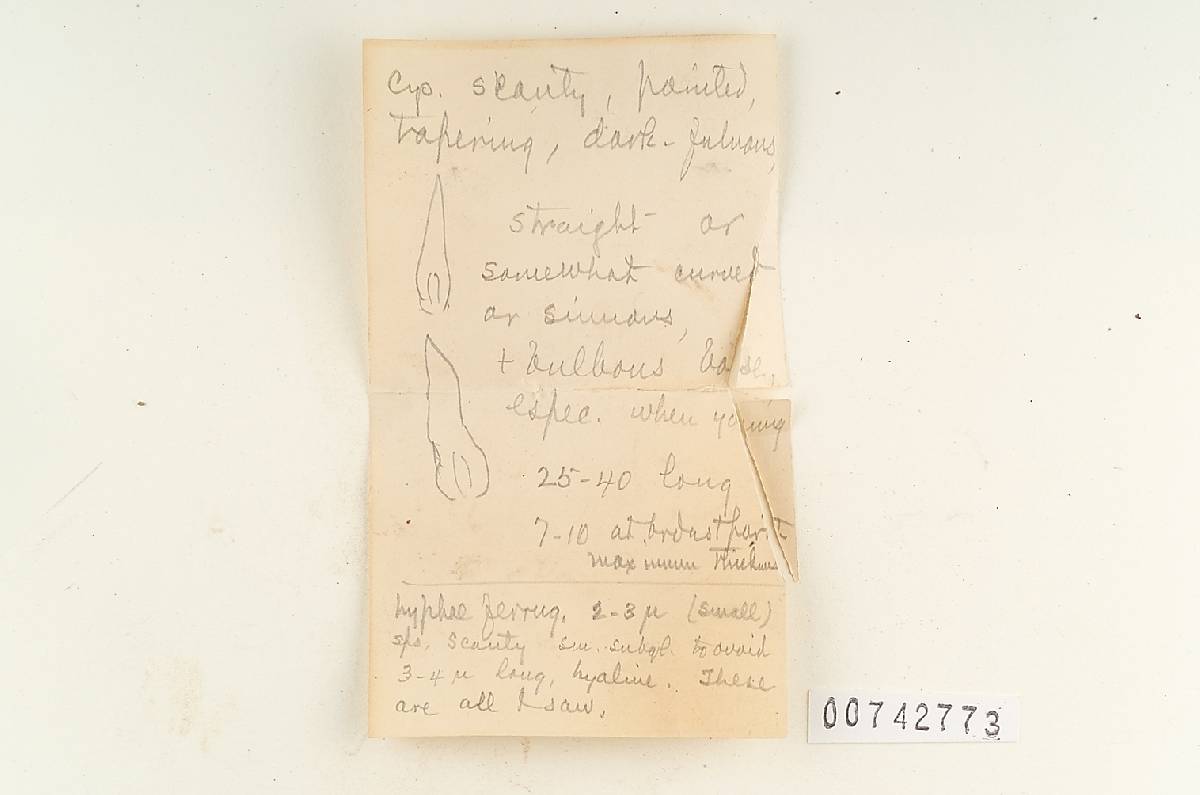 Cys. scanty, pointed,
tapering, dark-fulvous,
straight or
somewhat curved
or sinuous,
+ bulbous base,
espec. when young
25-40 long
7-10 at broadst part
maximum Thickness
hyphae ferrug. 2-3 µ (small)
sps. scanty sm. subgl. to ovoid
3-4 µ long, hyaline. These
are all I saw.
00742773